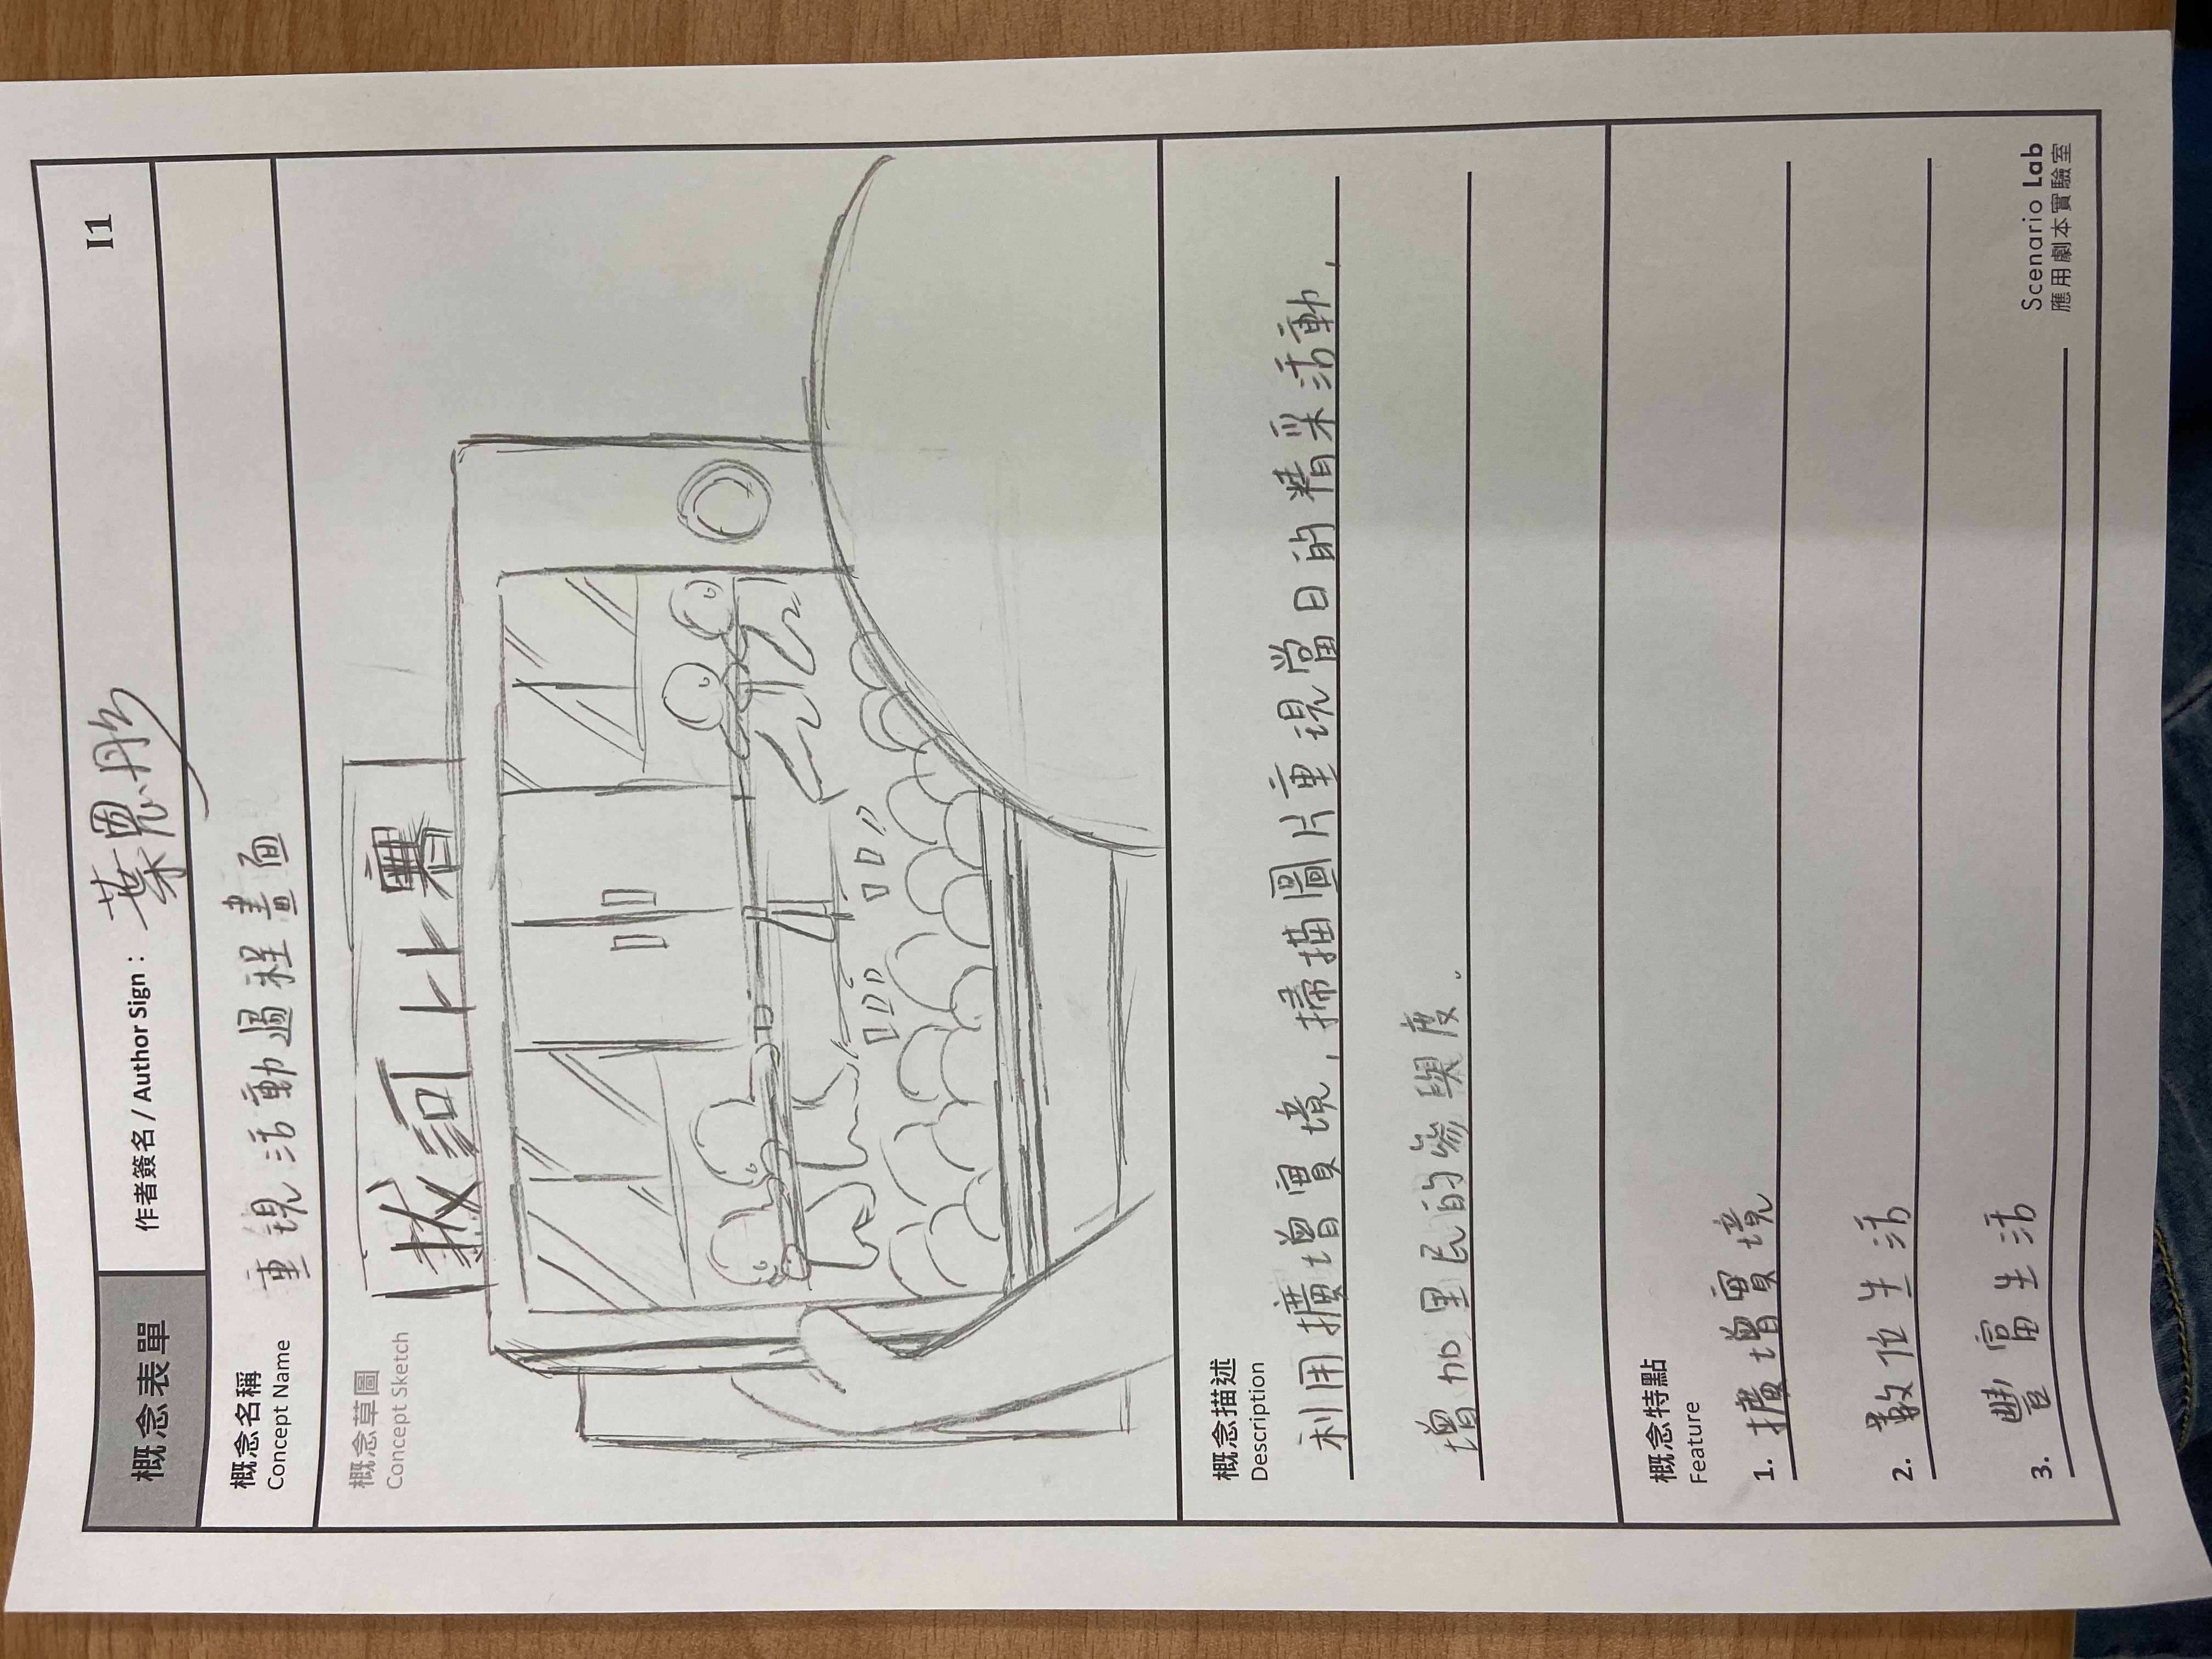 I1
概念表單
作者簽名 / Author Sign： 葉恩彤
概念名稱
Concept Name
重現活動過程畫面
概念草圖
Concept Sketch
拔河比賽
概念描述
Description
利用擴增實境，掃描圖片重現當日的精采活動，
增加里民的參與度。
概念特點
Feature
1. 擴增實境
2. 數位生活
3. 豐富生活
Scenario Lab
應用劇本實驗室